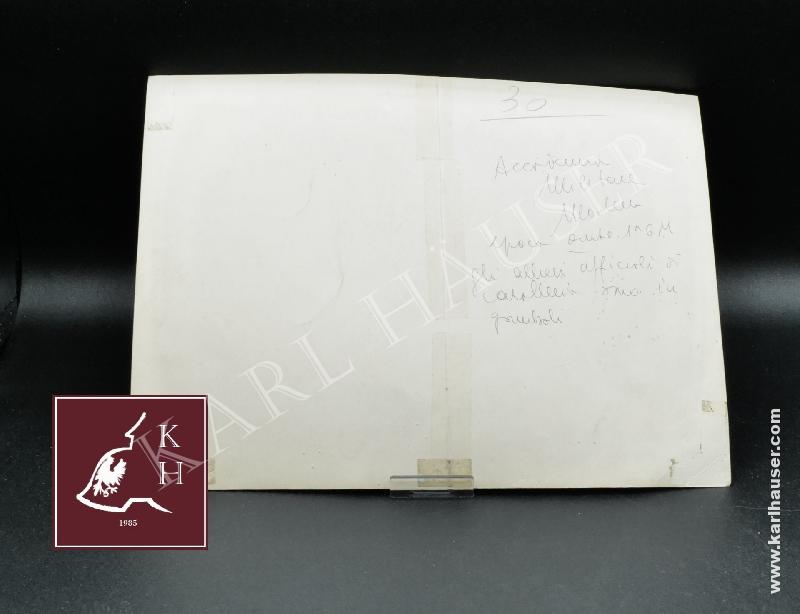 30
Accademia
Militare
Modena
epoca ante 1ª G M
gli allievi ufficiali di
Cavalleria sono in
gambali
KARL HAUSER
K
H
1985
www.karlhauser.com